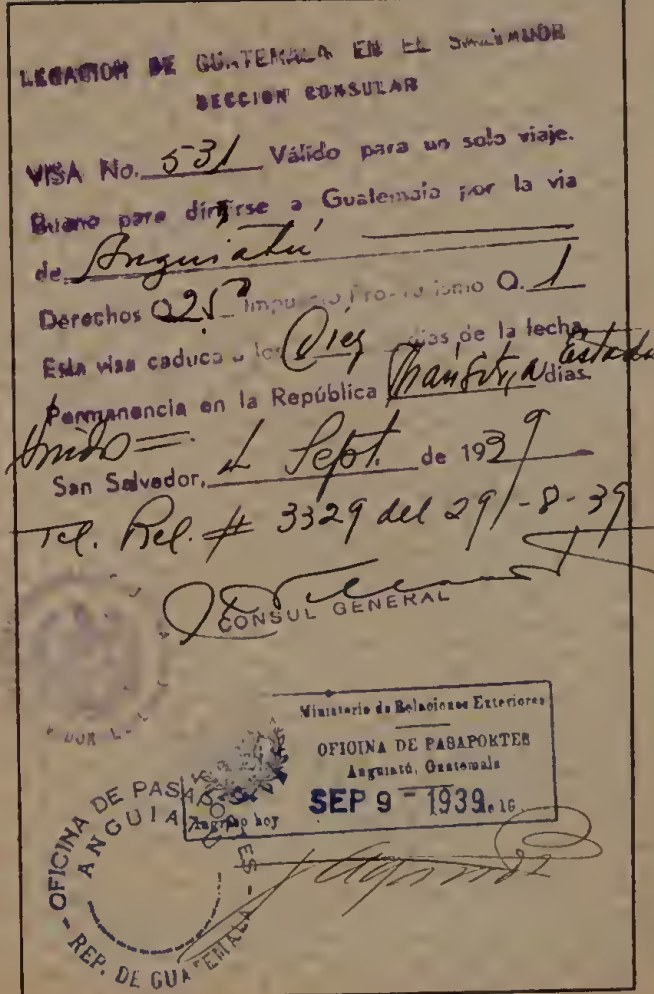 LEGACION DE GUATEMALA EN EL SALVADOR
SECCION CONSULAR
VISA No. 531 Válido para un solo viaje.
Bueno para dirigirse a Guatemala por la via
de Anguiatú
Derechos Q 25 Impuesto Pro-Turismo Q. 1
Esta visa caduca a los Diez días de la fecha
Permanencia en la República Tránsito, a Estados días.
Unidos=.
San Salvador, Sept. de 1939
Tel. Rel. # 3329 del 29-8-39
CONSUL GENERAL
Ministerio de Relaciones Exteriores
OFICINA DE PASAPORTES
Anguiató, Guatemala
SEP 9 - 1939
Ingreso hoy
OFICINA DE PASAPORTES
ANGUIATU
REP. DE GUATEMALA